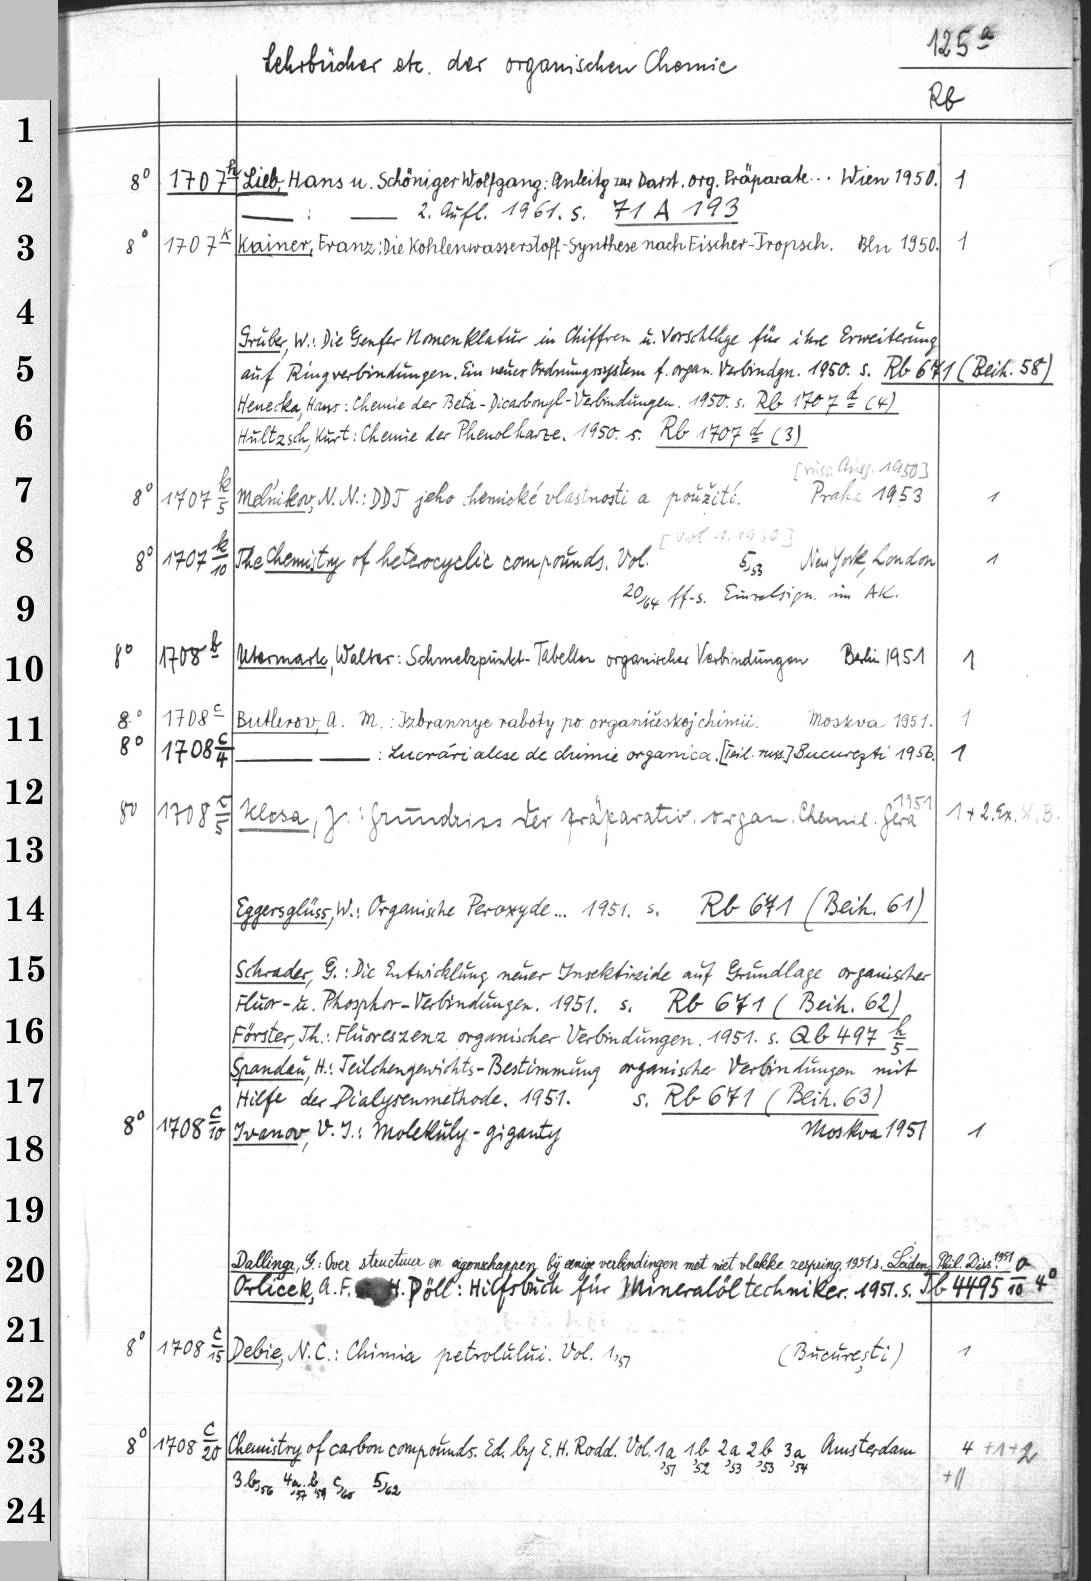 125 a
Lehrbücher etc. der organischen Chemie
Rb
1
2
3
4
5
6
7
8
9
10
11
12
13
14
15
16
17
18
19
20
21
22
23
24
8° 1707 h Lieb, Hans u. Schöniger Wolfgang: Anleitg zur Darst. org. Präparate... Wien 1950. 1
— : — 2. Aufl. 1961. s. 71 A 193
8° 1707 k Kainer, Franz: Die Kohlenwasserstoff-Synthese nach Fischer-Tropsch. Bln 1950. 1
Gruber, W.: Die Genfer Nomenklatur in Chiffren u. Vorschläge für ihre Erweiterung
auf Ringverbindungen. Ein neues Ordnungssystem f. organ. Verbindgn. 1950. s. Rb 671 (Beih. 58)
Henecka, Hans: Chemie der Beta-Dicarbonyl-Verbindungen. 1950. s. Rb 1707 d (4)
Hultzsch, Kurt: Chemie der Phenolharze. 1950. s. Rb 1707 d (3)
[russ. Ausg. 1950]
8° 1707 k/5 Melnikov, N. N.: DDT jeho chemické vlastnosti a použití. Praha 1953 1
[Vol. 1. 1950]
8° 1707 k/10 The Chemistry of heterocyclic compounds. Vol. 5,53 New York, London 1
20,64 ff. s. Einzelsign. im AK.
8° 1708 b Utermark, Walter: Schmelzpunkt-Tabellen organischer Verbindungen Berlin 1951 1
8° 1708 c Butlerov, A. M.: Izbrannye raboty po organičeskoj chimii. Moskva 1951. 1
8° 1708 c/4 — — : Lucrări alese de chimie organica. [Teil. russ.] Bucureşti 1956. 1
8° 1708 c/5 Klosa, J.: Grundriss der präparativ. organ. Chemie. Gera 1951 1 + 2. Ex.
Eggersglüss, W.: Organische Peroxyde... 1951. s. Rb 671 (Beih. 61)
Schrader, G.: Die Entwicklung neuer Insektizide auf Grundlage organischer
Fluor- u. Phosphor-Verbindungen. 1951. s. Rb 671 (Beih. 62)
Förster, Th.: Fluoreszenz organischer Verbindungen. 1951. s. Qb 497 h/5
Spandau, H.: Teilchengewichts-Bestimmung organischer Verbindungen mit
Hilfe der Dialysenmethode. 1951. s. Rb 671 (Beih. 63)
8° 1708 c/10 Ivanov, V. I.: Molekuly-giganty Moskva 1951 1
Dallinga, G.: Over structuur en eigenschappen bij enige verbindingen met niet vlakke zesring 1951 s. Leiden, Phil. Diss. 1951
Orlicek, A. F. H. Pöll: Hilfsbuch für Mineralöltechniker. 1951. s. Tb 4495 a/10 4°
8° 1708 c/15 Debie, N. C.: Chimia petrolului. Vol. 1,51 (Bucureşti) 1
8° 1708 c/20 Chemistry of carbon compounds. Ed. by E. H. Rodd. Vol. 1a,51 1b,52 2a,53 2b,53 3a,54 Amsterdam 4 +1+2
3b,56 4a,57 b,59 c,60 5,62 +11